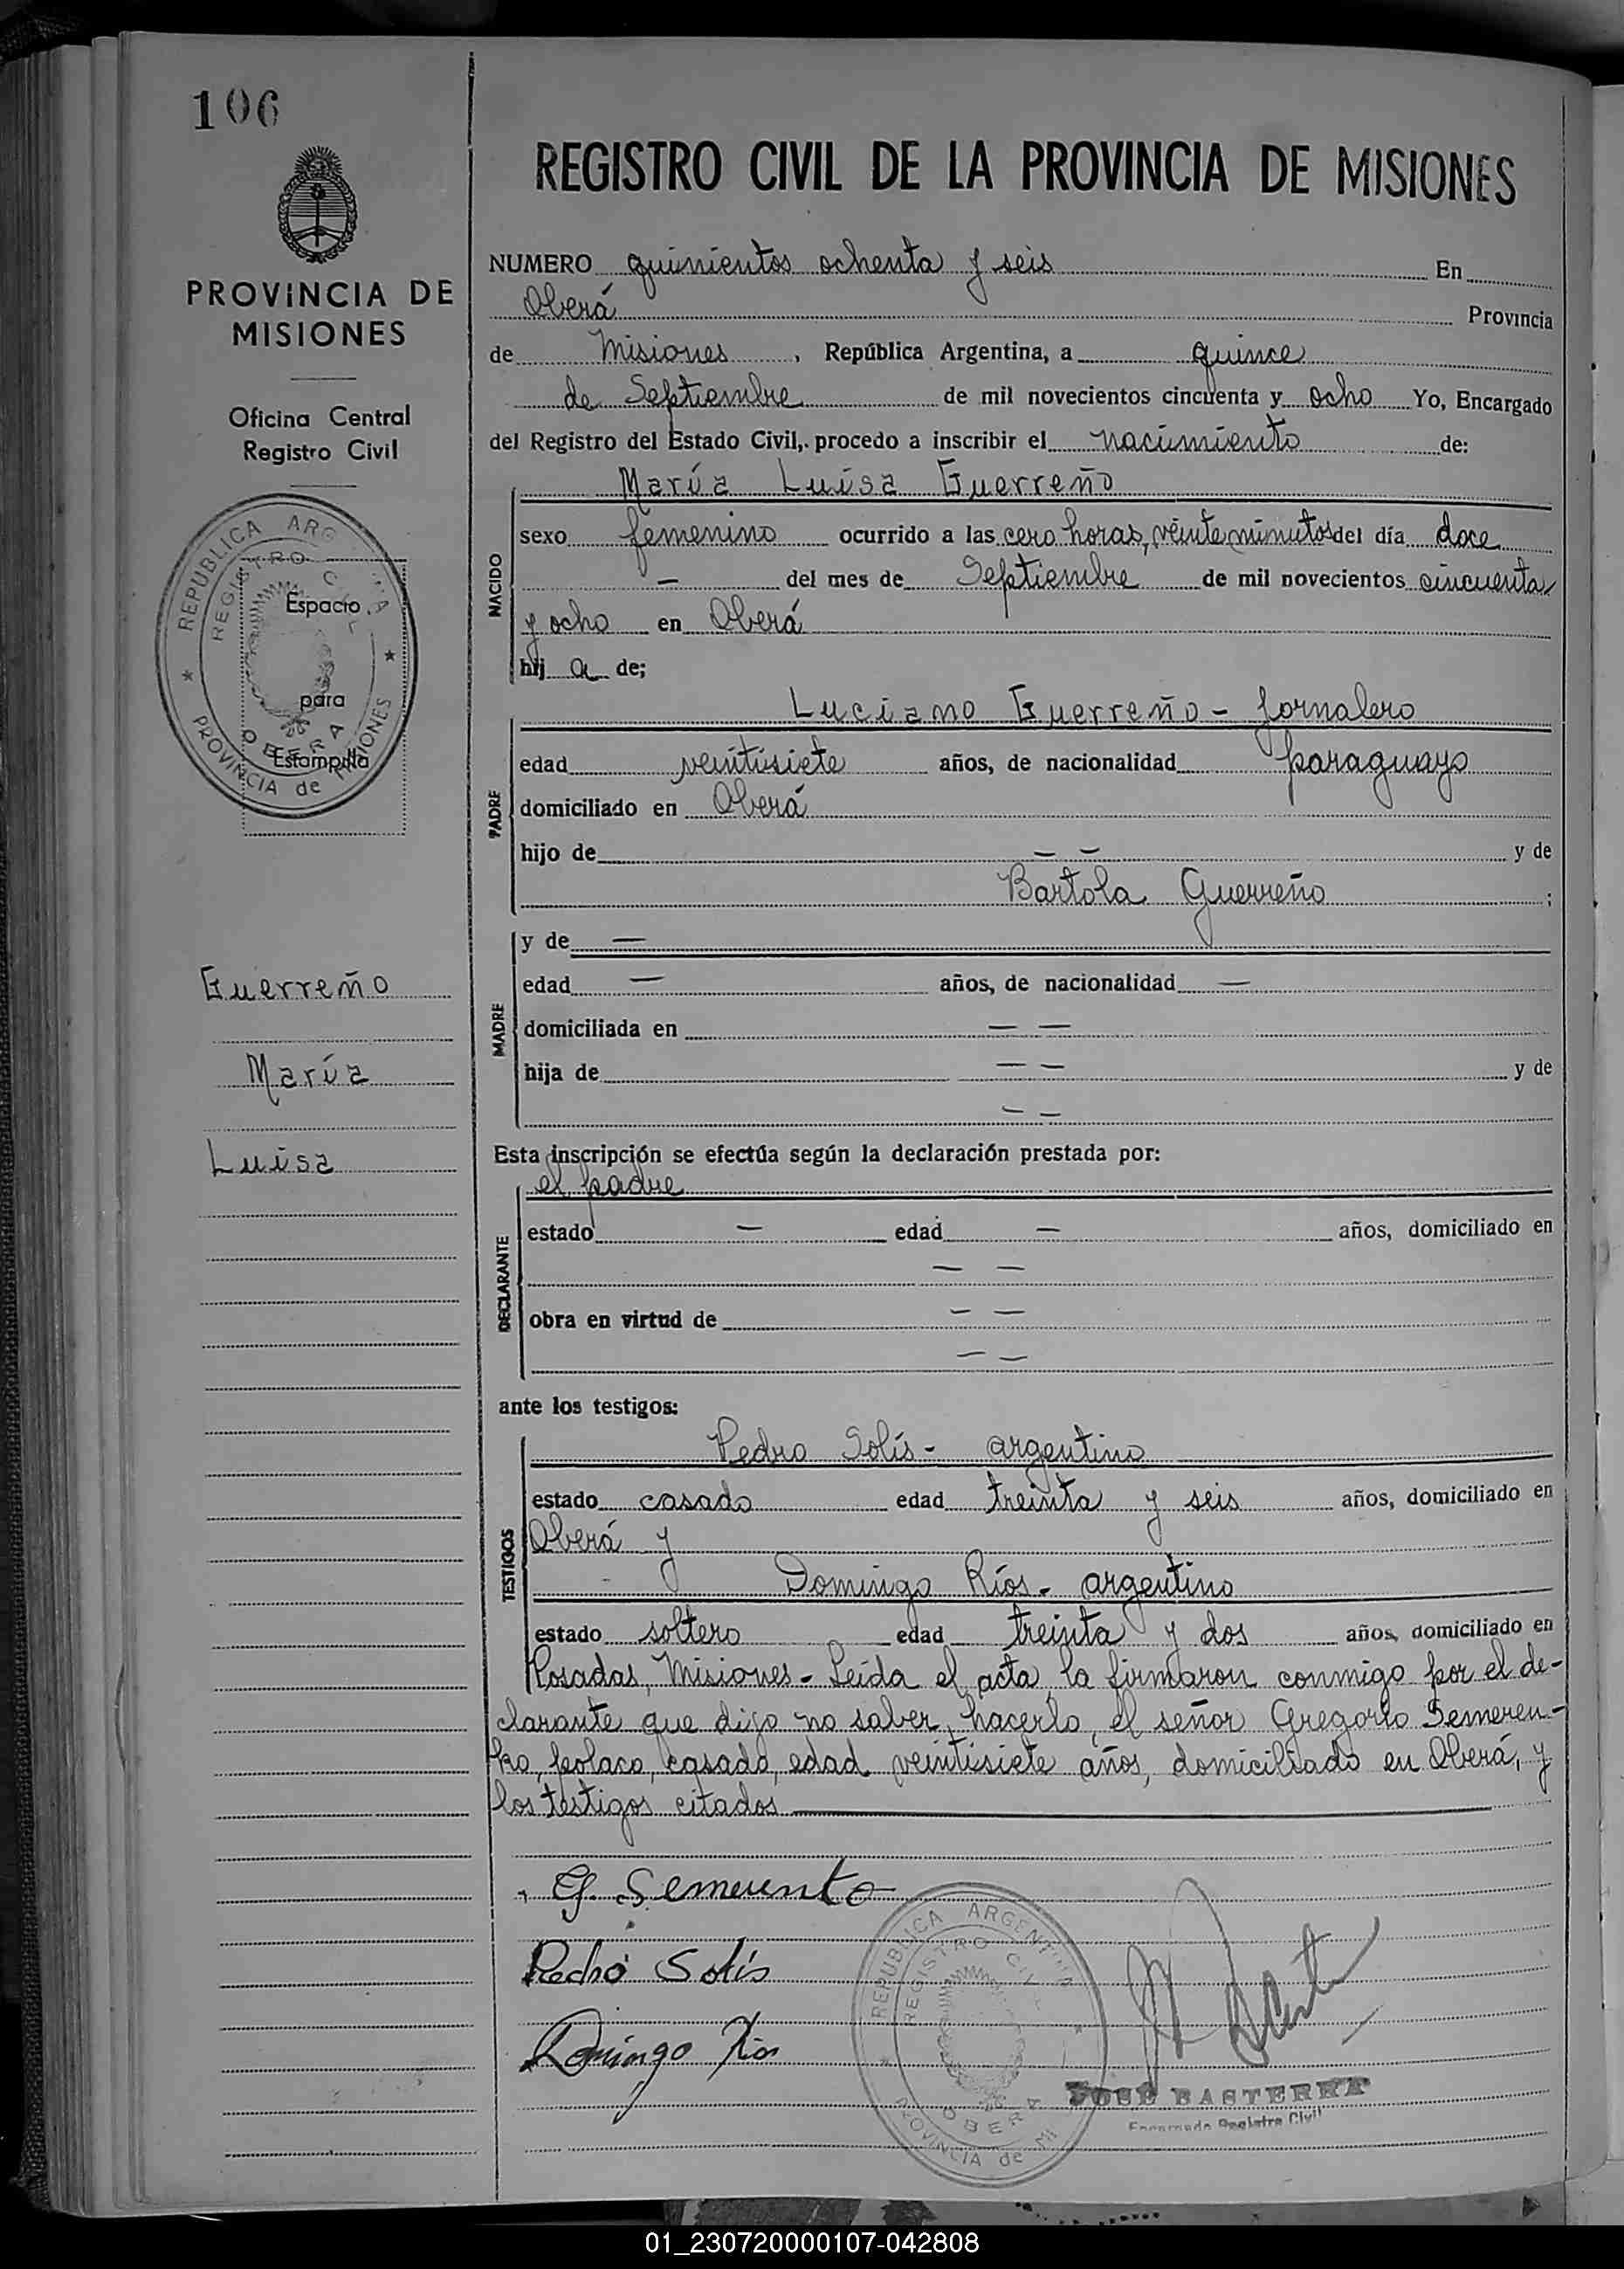 106
PROVINCIA DE
MISIONES
Oficina Central
Registro Civil
REPUBLICA ARG
REGISTRO C
Espacio
para
Estampilla
OBERA
PROVINCIA de MISIONES
Guerreño
María
Luisa
REGISTRO CIVIL DE LA PROVINCIA DE MISIONES
NUMERO quinientos ochenta y seis En
Oberá Provincia
de Misiones, República Argentina, a quince
de Septiembre de mil novecientos cincuenta y ocho Yo, Encargado
del Registro del Estado Civil, procedo a inscribir el nacimiento de:
NACIDO
María Luisa Guerreño
sexo femenino ocurrido a las cero horas, veinte minutos del día doce
— del mes de Septiembre de mil novecientos cincuenta
y ocho en Oberá
hij a de;
PADRE
Luciano Guerreño - Jornalero
edad veintisiete años, de nacionalidad paraguayo
domiciliado en Oberá
hijo de — — y de
Bartola Guerreño ;
MADRE
y de —
edad — años, de nacionalidad —
domiciliada en — —
hija de — — y de
— —
Esta inscripción se efectúa según la declaración prestada por:
DECLARANTE
el padre
estado — edad — años, domiciliado en
— —
obra en virtud de — —
— —
ante los testigos:
TESTIGOS
Pedro Solís - argentino
estado casado edad treinta y seis años, domiciliado en
Oberá y
Domingo Ríos - argentino
estado soltero edad treinta y dos años, domiciliado en
Posadas, Misiones - Leída el acta, la firmaron conmigo por el de-
clarante que dijo no saber hacerlo, el señor Gregorio Semeren-
ko, polaco, casado, edad veintisiete años, domiciliado en Oberá, y
los testigos citados
G. Semerenko
Pedro Solís
Domingo Ríos
REPUBLICA ARGENTINA
REGISTRO CIVIL
OBERA
PROVINCIA de MI
JOSE BASTERRA
Encargado Registro Civil
01_230720000107-042808